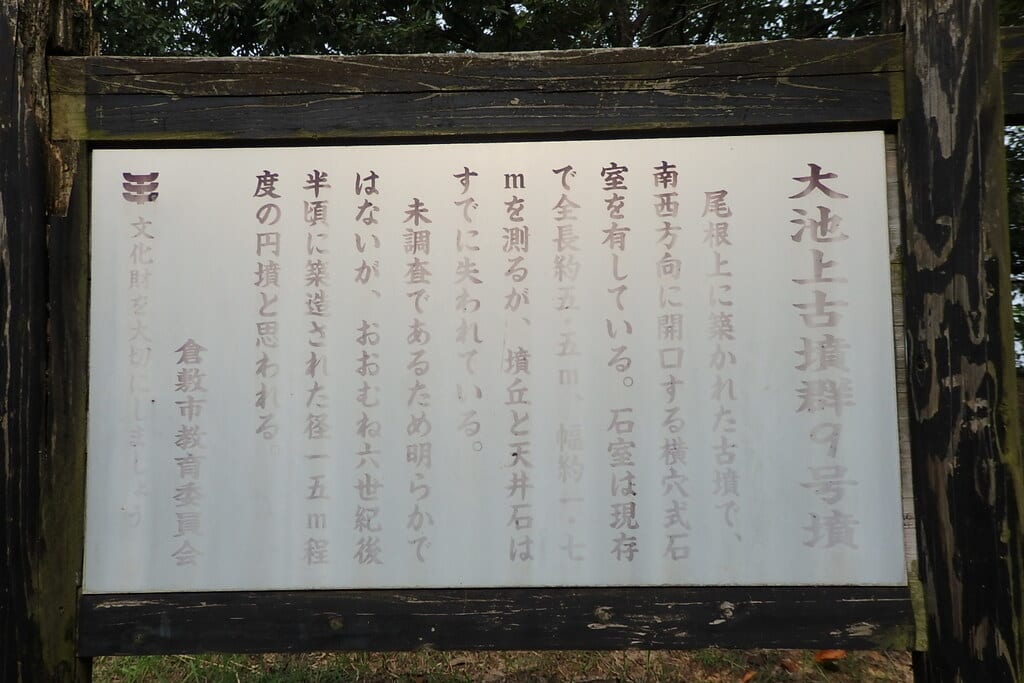 大池上古墳群9号墳
尾根上に築かれた古墳で、
南西方向に開口する横穴式石
室を有している。石室は現存
で全長約五・五m、幅約一・七
mを測るが、墳丘と天井石は
すでに失われている。
未調査であるため明らかで
はないが、おおむね六世紀後
半頃に築造された径一五m程
度の円墳と思われる。
倉敷市教育委員会
文化財を大切にしましょう